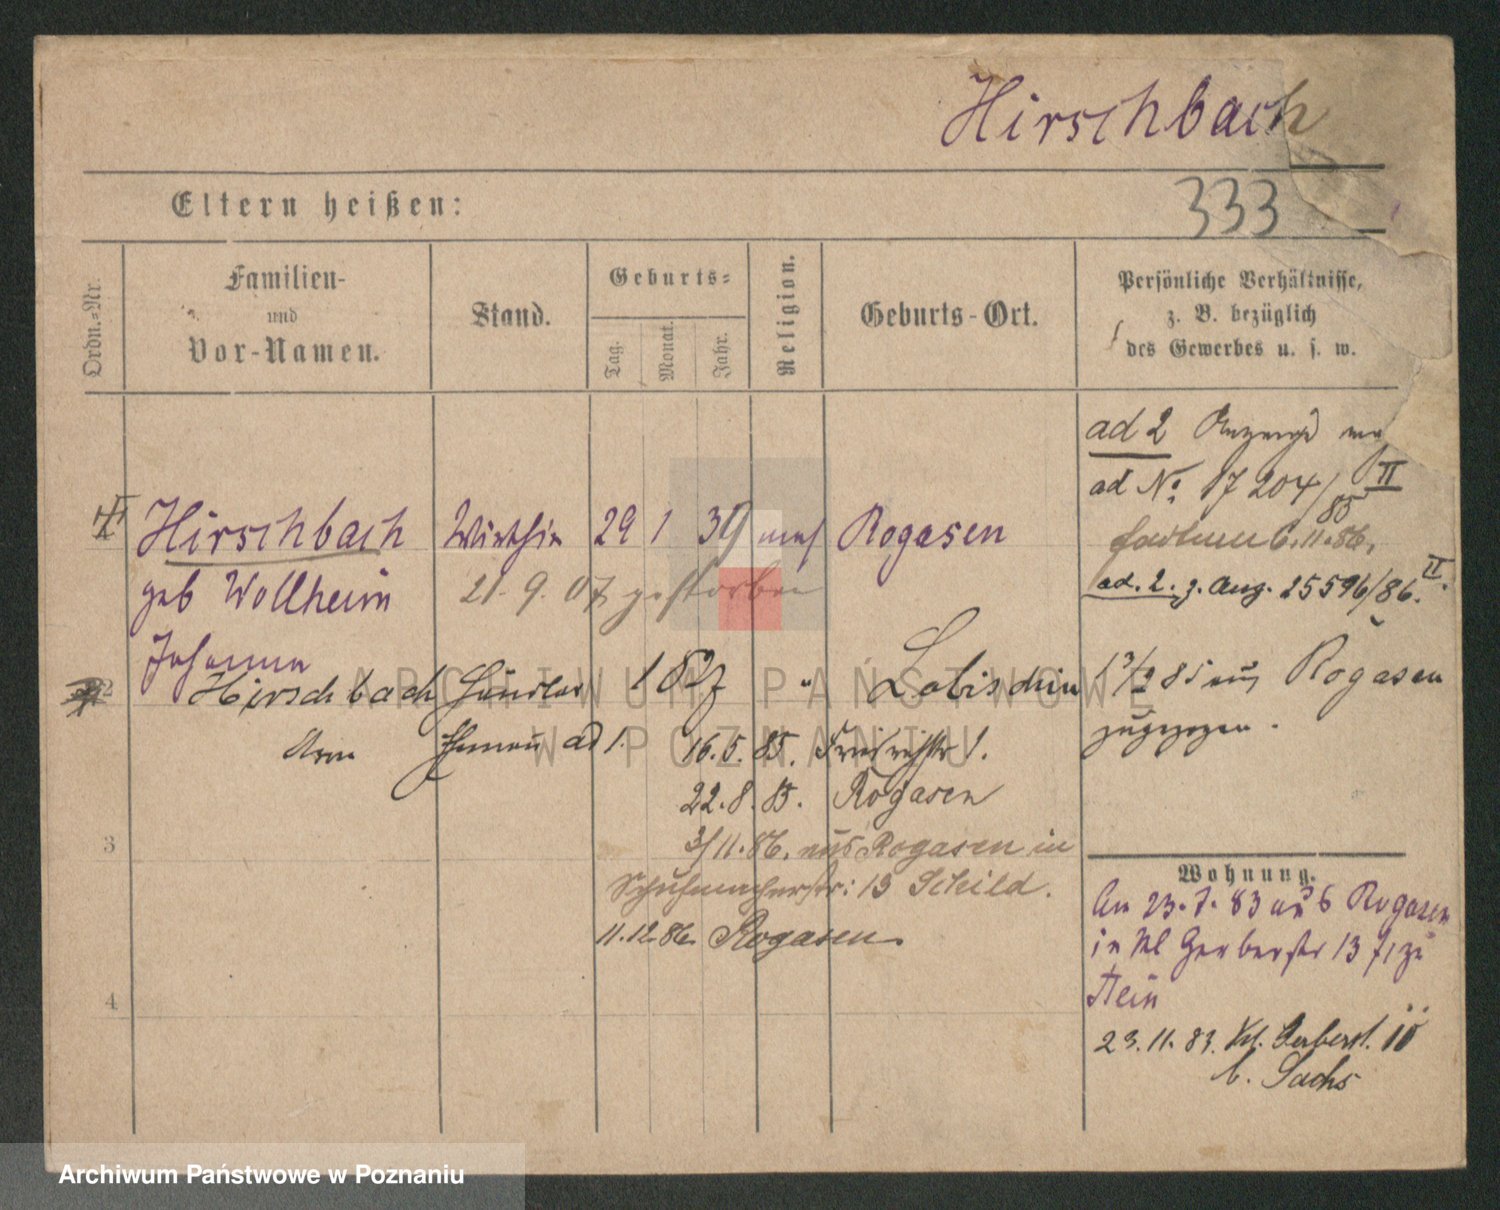 Hirschbach
333
Eltern heißen:
Ordn.-Nr.
Familien-
und
Vor-Namen.
Stand.
Geburts-
Tag.
Monat.
Jahr.
Religion.
Geburts-Ort.
Persönliche Verhältnisse,
z. B. bezüglich
des Gewerbes u. s. w.
ad 2
ad No. 17204/85 II
6.11.86.
ad. 2. z. Ang. 25596/86. II.
Hirschbach Wirthin 29 1 39 mos Rogasen
geb Wollheim
21. 9. 07 gestorben
Johanna
2 Hirschbach Händler 1827 " Labischin
Aron Ehemann ad 1.
16. 5. 85.
22. 8. 85. Rogasen
3
3/11. 86. aus Rogasen in
Schuhmacherstr: 13 Schild.
11. 12. 86. Rogasen.
4
85 aus Rogasen
zugezogen.
Wohnung.
An 23. 7. 83 aus Rogasen
in Kl Gerberstr 13 zu
Stein
23. 11. 83. Kl. Gerberst.
b. Sachs
ARCHIWUM PAŃSTWOWE
W POZNANIU
Archiwum Państwowe w Poznaniu